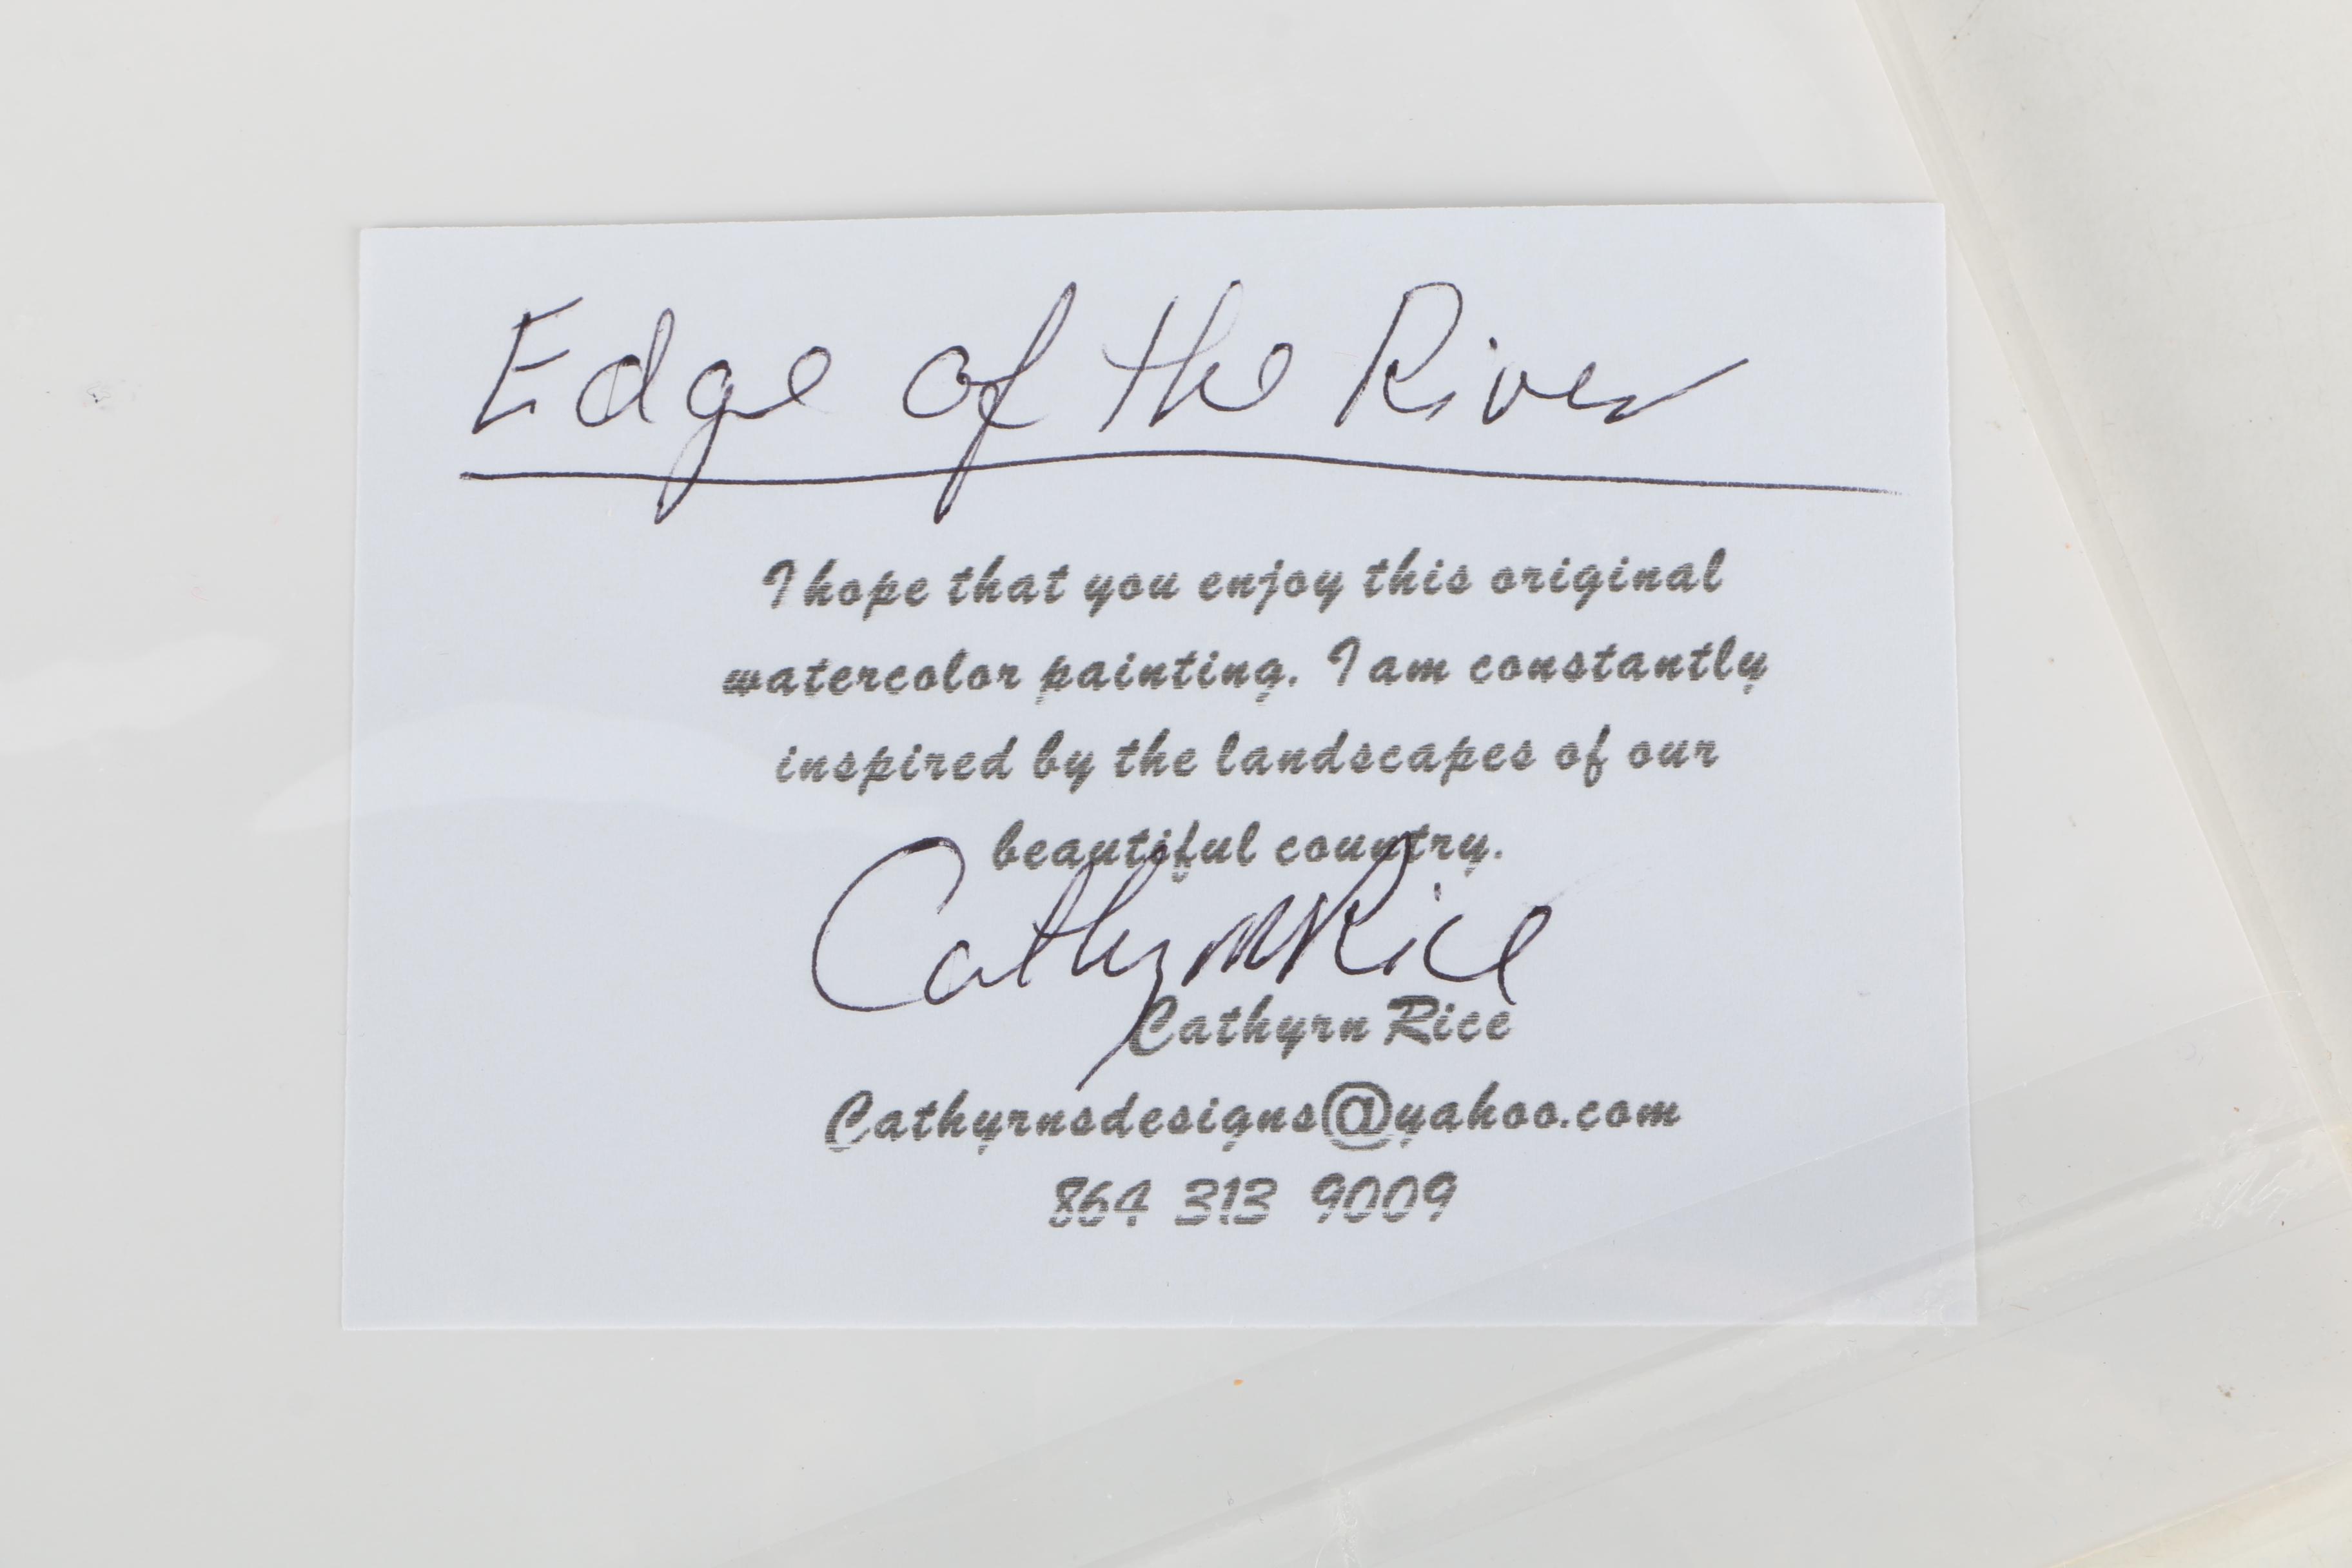 Edge of the River
I hope that you enjoy this original
watercolor painting. I am constantly
inspired by the landscapes of our
beautiful country.
Cathyrn Rice
Cathyrn Rice
Cathyrnsdesigns@yahoo.com
864 313 9009